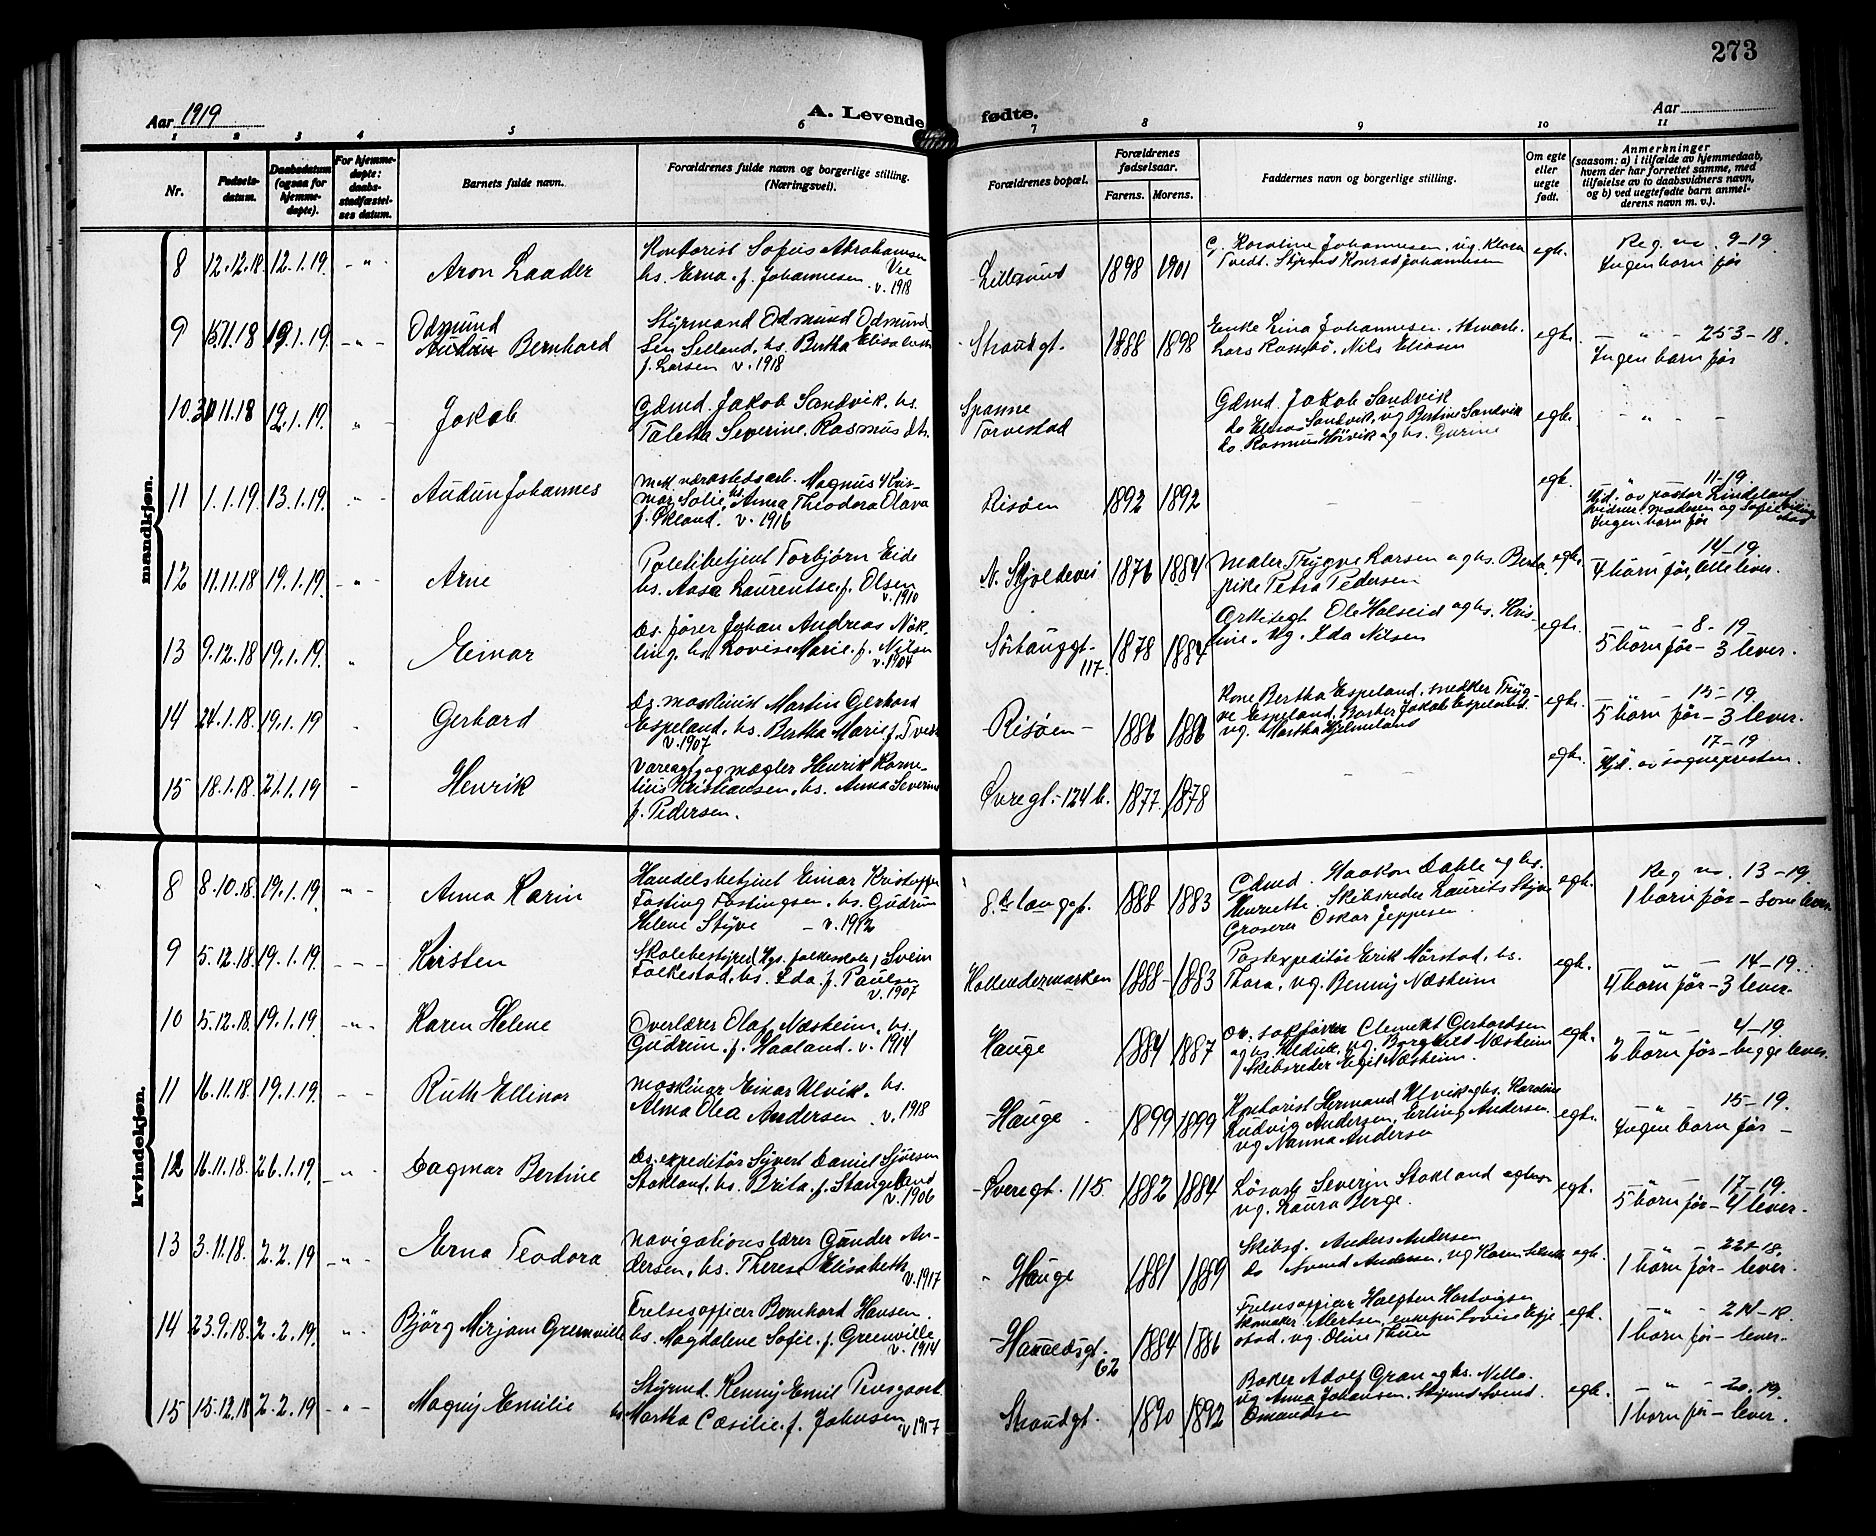 273
Aar 1919
A. Levende fødte.
Aar
1 2 3 4 5 6 7 8 9 10 11
Nr.
Fødsels-
datum.
Daabsdatum
(ogsaa for
hjemme-
døpte).
For hjemme-
døpte:
daabs-
stadfæstel-
ses datum.
Barnets fulde navn.
Forældrenes fulde navn og borgerlige stilling.
(Næringsvei).
Forældrenes bopæl.
Forældrenes
fødselsaar.
Farens. Morens.
Faddernes navn og borgerlige stilling.
Om egte
eller
uegte
født.
Anmerkninger
(saasom: a) i tilfælde av hjemmedaab,
hvem der har forrettet samme, med
tilføielse av to daabsvidners navn,
og b) ved uegtefødte barn anmel-
derens navn m. v.).
mandkjøn.
8 12.12.18 12.1.19. - " - Aron Laader
Kontorist Sofus Abrahamsen
Vee
hs. Erna. f. Johannesen v. 1918
Lillesund 1898 1901
G. Karoline Johannesen, ug. Klara
Tvedt. Styrmd Konrad Johannesen
egte.
Reg. no. 9-19
Ingen barn før
9 15.11.18 19.1.19. - " -
Odmund
Audun Bernhard
Styrmand Odmund Odmund-
sen Selland, hs. Bertha Elisabeth
f. Larsen v. 1918
Strandgt. 1888 1898
Enke Lina Johannesen,
Lars Rossebø, Nils Eliasen
egte.
- " - 253-18.
Ingen barn før
10 30.11.18 12.1.19. " - Jakob
Gdmd. Jakob Sandvik. hs.
Taletta Severine. Rasmusdtr.
Spanne
Torvestad
Gdmd. Jakob Sandvik
do Elias Sandvik, ug Bertine Sandvik
do. Rasmus Høivik og hs. Gurine
egte.
- " -
11 1.1.19 13.1.19. " - Audun Johannes
mek. værkstedsarb. Magnus Hris-
mar Solie, hs. Anna Theodora Olava
f. Økland. v. 1916
Risøen 1892 1892
- -
egte.
11-19.
Hjd. av pastor Lindeland
Ingen barn før
12 11.11.18 19.1.19. - " - Arne
Politibetjent Torbjørn Eide
hs. Aasa Laurentse. f. Olsen
v. 1910
N. Skjoldevei 1876 1884
Maler Trygve Larsen og hs. Berta,
pike Petra Pedersen
egte.
14-19.
4 barn før, alle lever.
13 9.12.18 19.1.19. " Einar
Ds. fører Johan Andreas Nøk-
ling. hs. Lovise Marie. f. Nilsen
v. 1904
Sørhauggt.
117. 1878 1884
Arkitegt Ole Halseid og hs. Kris-
tine. ug. Ida Nilsen
egte.
- " - 8-19
5 barn før - 3 lever.
14 24.1.18. 19.1.19 - Gerhard
Ds. maskinist Martin Gerhard
Espeland, hs. Bertha Marie f. Tveit
v. 1907
Risøen 1886 1886
Kone Bertha Espeland, snedker Tryg-
ve Espeland, Jakob Espeland.
ug. Martha Hjelmeland
egte.
- 15-19
5 barn før - 3 lever.
15 18.1.18. 21.1.19 - Henrik
Vareagt og mægler Henrik Korne-
lius Kristiansen, hs. Anna Severine
f. Pedersen.
Øvregt. 124 b. 1877. 1878
egte.
17-19
Hjd. av sogneprösten.
kvindekjøn.
8 8.10.18. 19.1.19. - " - Anna Karin
Handelsbetjent Einar Kristoffer
Fasting Fastingsen, hs. Gudrun
Helene Støve - v. 1912
8. de langgt. 1888 1883
Gdmd. Haakon Dahle og hs.
Henriette. Skibsreder Laurits Støve
Grosserer Oskar Jeppesen
egte.
Reg no. 13-19
1 barn før - som lever.
9 5.12.18. 19.1.19. - - - Kirsten
Skolebestyrer (Hgs. folkeskole) Svein
Folkestad. hs. Ida. f. Paulsen
v. 1907
Hollendermarken 1888 1883
Postexpeditør Erik Mørstad, hs.
Thora, ug. Benny Næsheim
egte.
- " - 14-19.
4 barn før - 3 lever.
10 5.12.18. 19.1.19 - " - Karen Helene
Overlærer Olaf Næsheim, hs.
Gudrun. f. Haaland. v. 1914
Hauge 1884 1887
Ov. sakfører Clemest Gerhardsen
og hs. ug. Borghild Næsheim
Skibsreder Egil Næsheim.
egte.
- " - 4-19.
2 barn før - begge lever.
11 16.11.18 19.1.19. - - Ruth Ellinor
Maskinar. Einar Ulvik. hs.
Alma Olea Andersen. v. 1918
Hauge 1899 1899
Kontorist Hermand Ulvik og hs. Karoline
Ludvig Andersen, Erling Andersen.
ug Nanna Andersen
egte.
- " - 15-19.
Ingen barn før -
12 16.11.18. 26.1.19. - " - Dagmar Bertine
Ds. expeditør Sjvert Daniel Sjursen
Stokland. hs. Brita. f. Stangeland
v. 1906
Øvregt. 115. 1882 1884
Løsarb. Severin Stokland og hs.
ug. Laura Berge.
egte.
- " - 17-19.
5 barn før - 4 lever.
13 3.11.18. 2.2.19 - " - Erna Teodora
Navigationslærer Gunder An-
dersen, hs. Therese Elisabeth
v. 1917
Hauge 1881 1889
Skibsf. Anders Andersen
do Svend Andersen, ug Karen
egte.
- " - 227-18.
1 barn før - lever.
14 23.9.18. 2.2.19. " - Bjørg Mirjam Greenville
Frelsesofficer Bernhard Hansen.
hs. Magdalene Sofie. f. Greenville
v. 1914
Haraldsgt.
62 1884 1886
Frelsesofficer Halfdan Hartvigsen
Skomaker. Mertsen,
ug. Oline Thuen
egte.
- " - 214-18.
1 barn før - lever.
15 15.12.18 2.2.19 - " - Magny Emilie
Styrmd. Kenny Emil Pevsgaard.
hs Martha Cæsilie. f. Johnsen
v 1917
Strandgt. 1890 1892
Baker Adolf Gran og hs. Nilla.
ug Anna Johansen. Styrmd Svend
Omundsen
egte.
- " - 20.19.
1 barn før - lever.